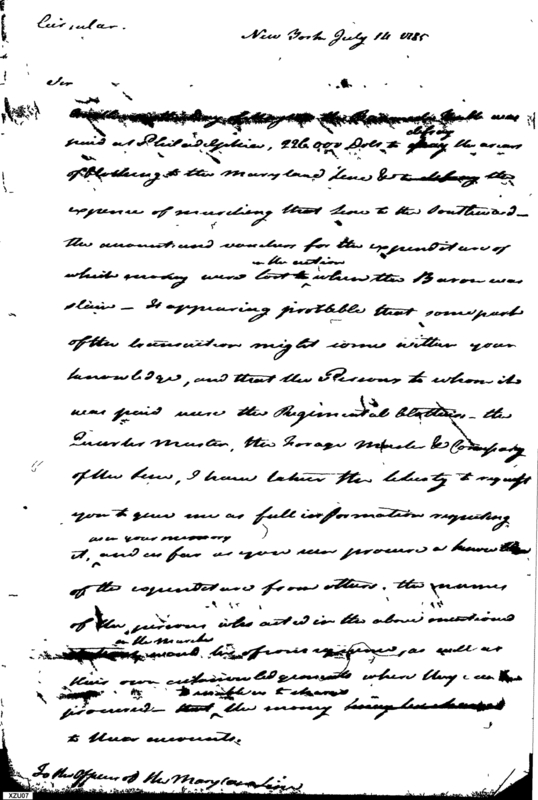 Circular.
New York July 14 1785
Sir
the Baron de Kalb was
defray
paid at Philadelphia, 226,000 Dolls to the arears
of Clothing to the Maryland Line & to defray the
expence of marching that Line to the Southward—
the accounts and vouchers for the expenditure of
in the action
which money were lost when the Baron was
slain— It appearing probable that some part
of the transaction might come within your
knowledge, and that the Persons to whom it
was paid were the Regimental Clothiers— the
Quarter Master, the Forage Master &
of the Line, I have taken the liberty to request
you to give me as full information respecting
as in your memory
it, and as far as you can procure a
of the expenditure from others. the names
of the persons who acted in the above mentioned
in the March
would be of, as well as
their own acknowledgements when they can
procured— the money
to their accounts.
To the Officers of the Maryland Line
XZU07